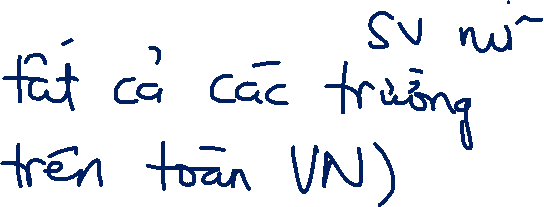 SV nữ
tất cả các trường
trên toàn VN)